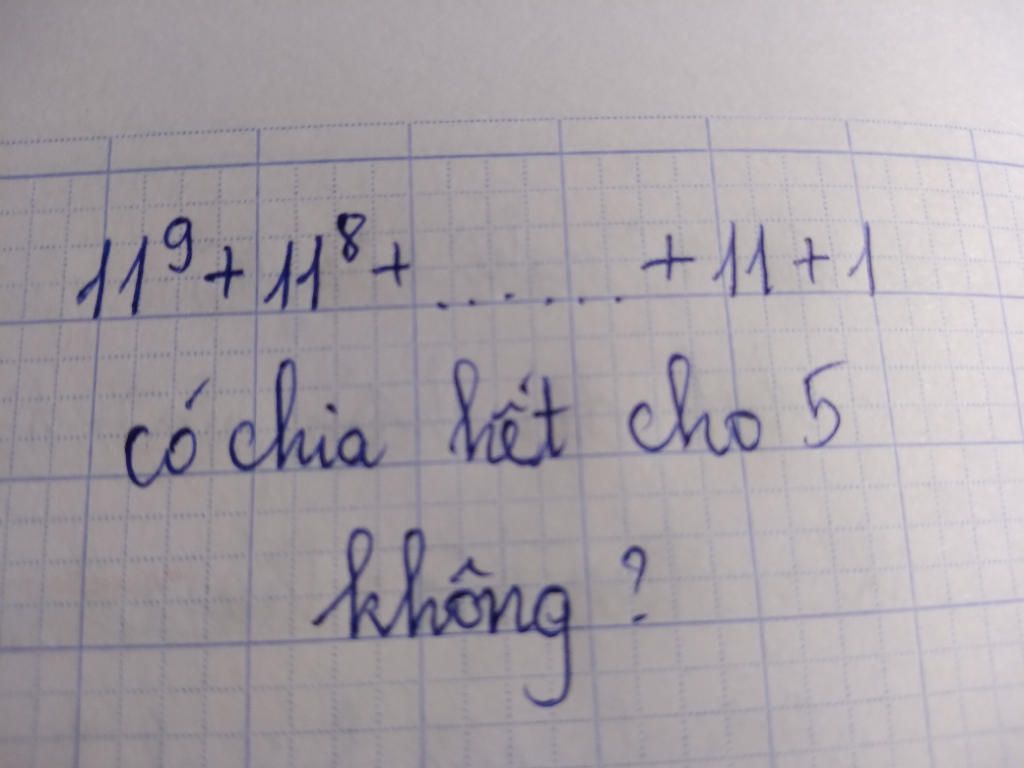 11⁹ + 11⁸ + ....... + 11 + 1
có chia hết cho 5
không ?